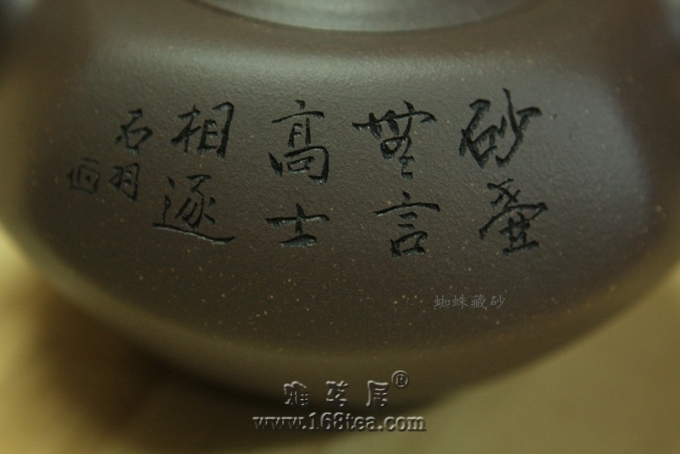 砂壶
無言
高士
相逐
石羽
蜘蛛藏砂
雅茗居®
www.168tea.com